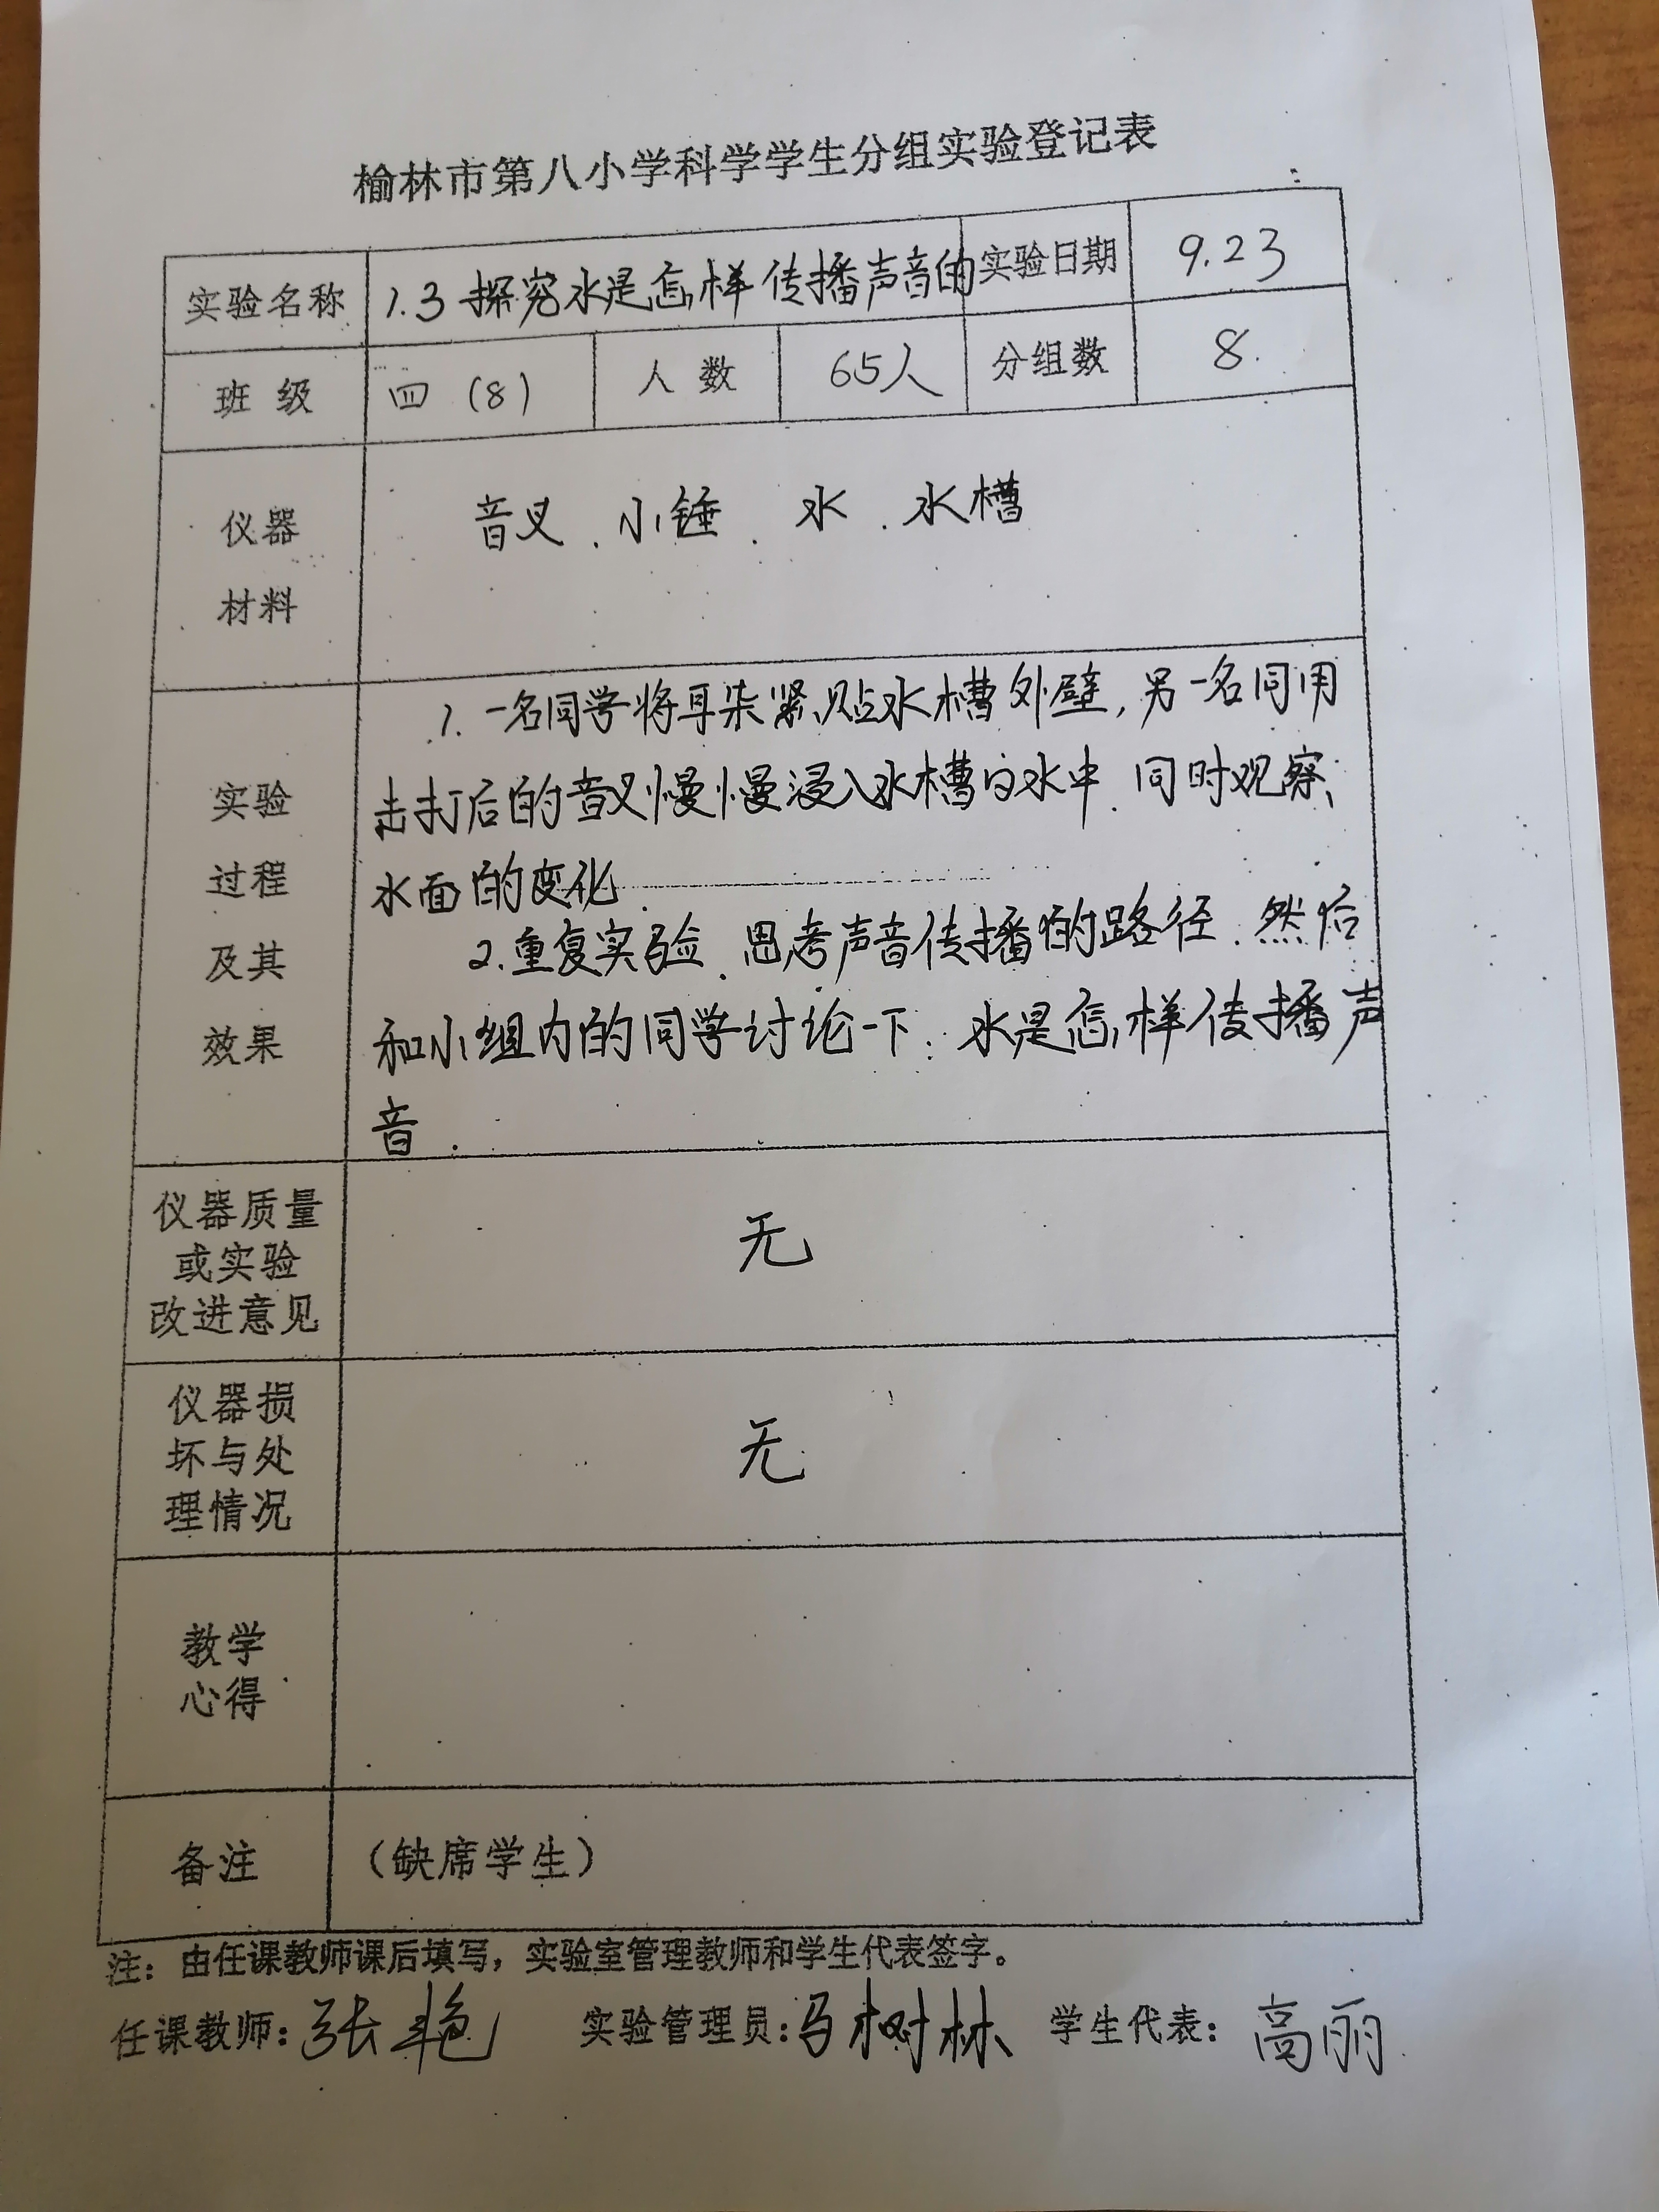 榆林市第八小学科学学生分组实验登记表
实验名称 1.3 探究水是怎样传播声音的 实验日期 9.23
班 级 四 (8) 人 数 65人 分组数 8
仪器
材料
音叉、小锤、水、水槽
实验
过程
及其
效果
1. 一名同学将耳朵紧贴水槽外壁,另一名同用
击打后的音叉慢慢浸入水槽的水中.同时观察
水面的变化.
2.重复实验.思考声音传播的路径.然后
和小组内的同学讨论一下:水是怎样传播声
音.
仪器质量
或实验
改进意见
无
仪器损
坏与处
理情况
无
教学
心得
备注 (缺席学生)
注:由任课教师课后填写,实验室管理教师和学生代表签字。
任课教师:张艳 实验管理员:马树林 学生代表:高丽